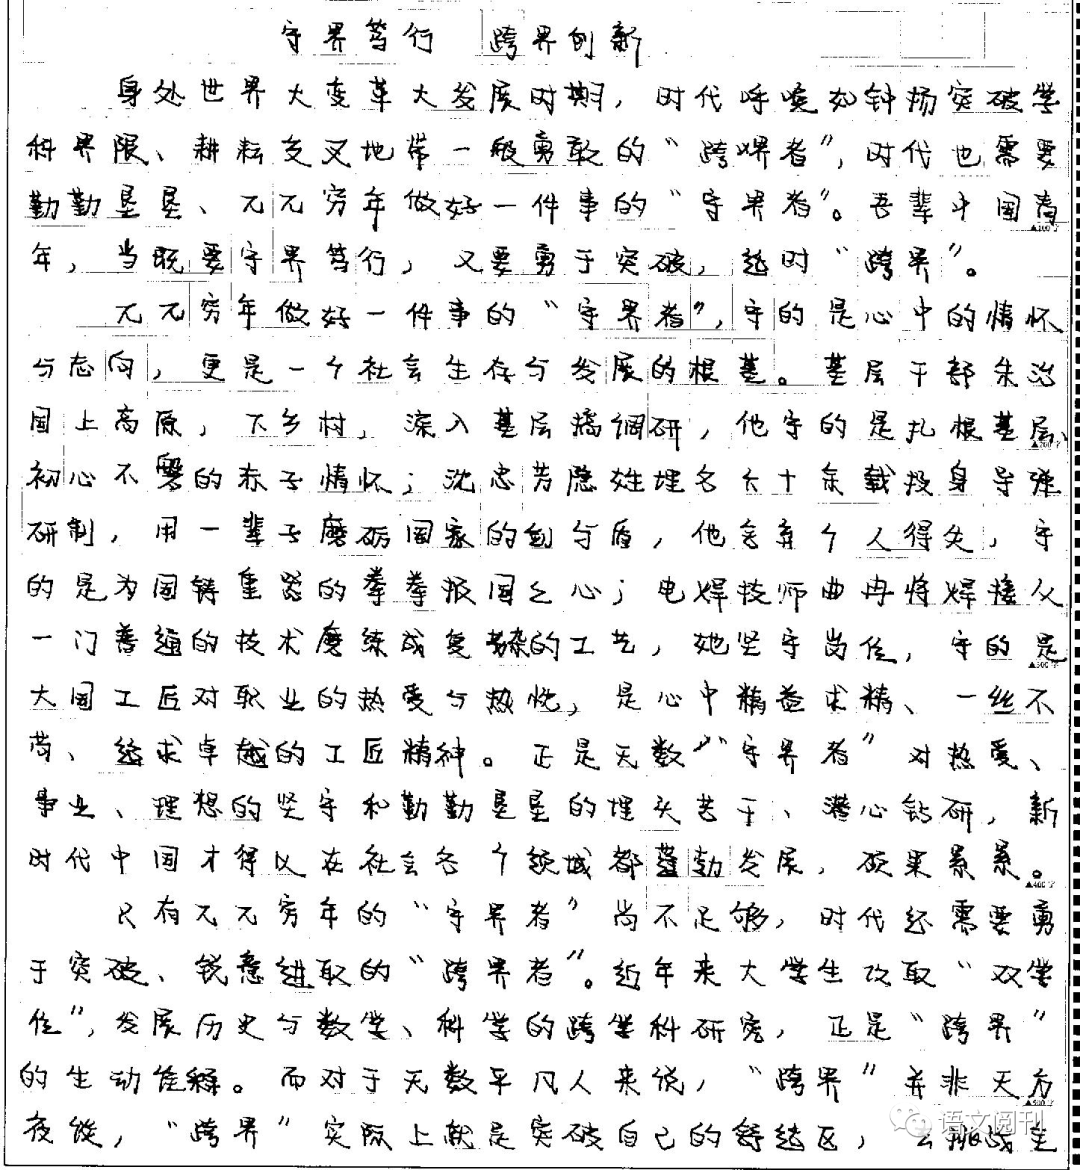 守界笃行 跨界创新
身处世界大变革大发展时期，时代呼唤如钟扬突破学
科界限、耕耘交叉地带一般勇敢的“跨界者”，时代也需要
勤勤垦垦、兀兀穷年做好一件事的“守界者”。吾辈中国青
年，当既要守界笃行，又要勇于突破，适时“跨界”。
兀兀穷年做好一件事的“守界者”，守的是心中的情怀
与志向，更是一个社会生存与发展的根基。基层干部朱治
国上高原，下乡村，深入基层搞调研，他守的是扎根基层，
初心不的赤子情怀；沈忠芳隐姓埋名六十余载投身导弹
研制，用一辈子磨砺国家的剑与盾，他舍弃个人得失，守
的是为国铸重器的拳拳报国之心；电焊技师曲冉将焊接从
一门普通的技术磨练成复杂的工艺，她坚守岗位，守的是
大国工匠对职业的热爱与热忱，是心中精益求精、一丝不
苟、追求卓越的工匠精神。正是无数“守界者”对热爱、
事业、理想的坚守和勤勤垦垦的埋头苦干、潜心钻研，新
时代中国才得以在社会各个领域都蓬勃发展，硕果累累。
只有兀兀穷年的“守界者”尚不足够，时代还需要勇
于突破、锐意进取的“跨界者”。近年来大学生攻取“双学
位”，发展历史与数学、科学的跨学科研究，正是“跨界”
的生动诠释。而对于无数平凡人来说，“跨界”并非天方
夜谈，“跨界”实际上就是突破自己的舒适区，去挑战全
▲100字
▲200字
▲300字
▲400字
▲500字
语文阅刊